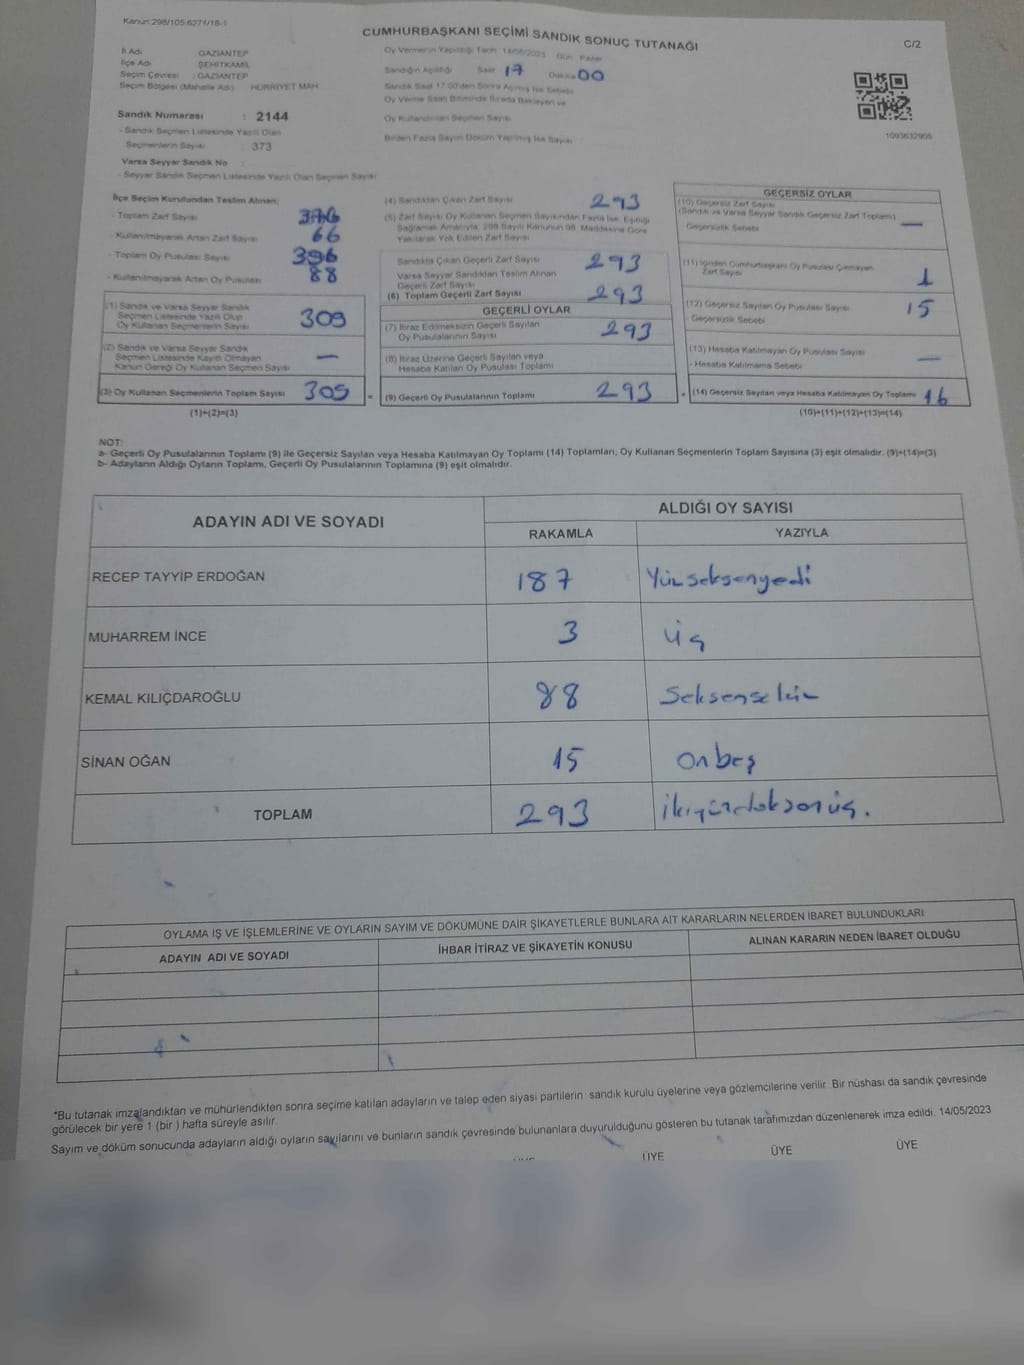 Kanun:298/105.6271/18-1
CUMHURBAŞKANI SEÇİMİ SANDIK SONUÇ TUTANAĞI
C/2
İl Adı : GAZİANTEP
İlçe Adı : ŞEHİTKAMİL
Seçim Çevresi : GAZİANTEP
Seçim Bölgesi (Mahalle Adı) : HÜRRİYET MAH.
Sandık Numarası : 2144
- Sandık Seçmen Listesinde Yazılı Olan
Seçmenlerin Sayısı : 373
Varsa Seyyar Sandık No :
- Seyyar Sandık Seçmen Listesinde Yazılı Olan Seçmen Sayısı
Oy Vermenin Yapıldığı Tarih: 14/05/2023 Gün: Pazar
Sandığın Açıldığı Saat 17 Dakika 00
Sandık Saat 17.00'den Sonra Açılmış İse Sebebi
Oy Verme Saati Bitiminde Sırada Bekleyen ve
Oy Kullandırılan Seçmen Sayısı
Birden Fazla Sayım Döküm Yapılmış İse Sayısı
1093632905
İlçe Seçim Kurulundan Teslim Alınan;
- Toplam Zarf Sayısı 376
- Kullanılmayarak Artan Zarf Sayısı 66
- Toplam Oy Pusulası Sayısı 396
- Kullanılmayarak Artan Oy Pusulası 88
(1) Sandık ve Varsa Seyyar Sandık
Seçmen Listesinde Yazılı Olup
Oy Kullanan Seçmenlerin Sayısı 309
(2) Sandık ve Varsa Seyyar Sandık
Seçmen Listesinde Kayıtlı Olmayan
Kanun Gereği Oy Kullanan Seçmen Sayısı —
(3) Oy Kullanan Seçmenlerin Toplam Sayısı 309
(1)+(2)=(3)
(4) Sandıktan Çıkan Zarf Sayısı 293
(5) Zarf Sayısı Oy Kullanan Seçmen Sayısından Fazla İse, Eşitliği
Sağlamak Amacıyla, 298 Sayılı Kanunun 98. Maddesine Göre
Yakılarak Yok Edilen Zarf Sayısı
Sandıkta Çıkan Geçerli Zarf Sayısı 293
Varsa Seyyar Sandıktan Teslim Alınan
Geçerli Zarf Sayısı
(6) Toplam Geçerli Zarf Sayısı 293
GEÇERLİ OYLAR
(7) İtiraz Edilmeksizin Geçerli Sayılan
Oy Pusulalarının Sayısı 293
(8) İtiraz Üzerine Geçerli Sayılan veya
Hesaba Katılan Oy Pusulası Toplamı
= (9) Geçerli Oy Pusulalarının Toplamı 293
GEÇERSİZ OYLAR
(10) Geçersiz Zarf Sayısı
(Sandık ve Varsa Seyyar Sandık Geçersiz Zarf Toplamı) —
Geçersizlik Sebebi
(11) İçinden Cumhurbaşkanı Oy Pusulası Çıkmayan
Zarf Sayısı 1
(12) Geçersiz Sayılan Oy Pusulası Sayısı 15
Geçersizlik Sebebi
(13) Hesaba Katılmayan Oy Pusulası Sayısı —
- Hesaba Katılmama Sebebi
+ (14) Geçersiz Sayılan veya Hesaba Katılmayan Oy Toplamı 16
(10)+(11)+(12)+(13)=(14)
NOT:
a- Geçerli Oy Pusulalarının Toplamı (9) ile Geçersiz Sayılan veya Hesaba Katılmayan Oy Toplamı (14) Toplamları, Oy Kullanan Seçmenlerin Toplam Sayısına (3) eşit olmalıdır. (9)+(14)=(3)
b- Adayların Aldığı Oyların Toplamı, Geçerli Oy Pusulalarının Toplamına (9) eşit olmalıdır.
ADAYIN ADI VE SOYADI ALDIĞI OY SAYISI
RAKAMLA YAZIYLA
RECEP TAYYİP ERDOĞAN 187 Yüzseksenyedi
MUHARREM İNCE 3 üç
KEMAL KILIÇDAROĞLU 88 Seksensekiz
SİNAN OĞAN 15 onbeş
TOPLAM 293 ikiyüzdoksanüç.
OYLAMA İŞ VE İŞLEMLERİNE VE OYLARIN SAYIM VE DÖKÜMÜNE DAİR ŞİKAYETLERLE BUNLARA AİT KARARLARIN NELERDEN İBARET BULUNDUKLARI
ADAYIN ADI VE SOYADI İHBAR İTİRAZ VE ŞİKAYETİN KONUSU ALINAN KARARIN NEDEN İBARET OLDUĞU
*Bu tutanak imzalandıktan ve mühürlendikten sonra seçime katılan adayların ve talep eden siyasi partilerin sandık kurulu üyelerine veya gözlemcilerine verilir. Bir nüshası da sandık çevresinde
görülecek bir yere 1 (bir ) hafta süreyle asılır.
Sayım ve döküm sonucunda adayların aldığı oyların sayılarını ve bunların sandık çevresinde bulunanlara duyurulduğunu gösteren bu tutanak tarafımızdan düzenlenerek imza edildi. 14/05/2023
ÜYE ÜYE ÜYE